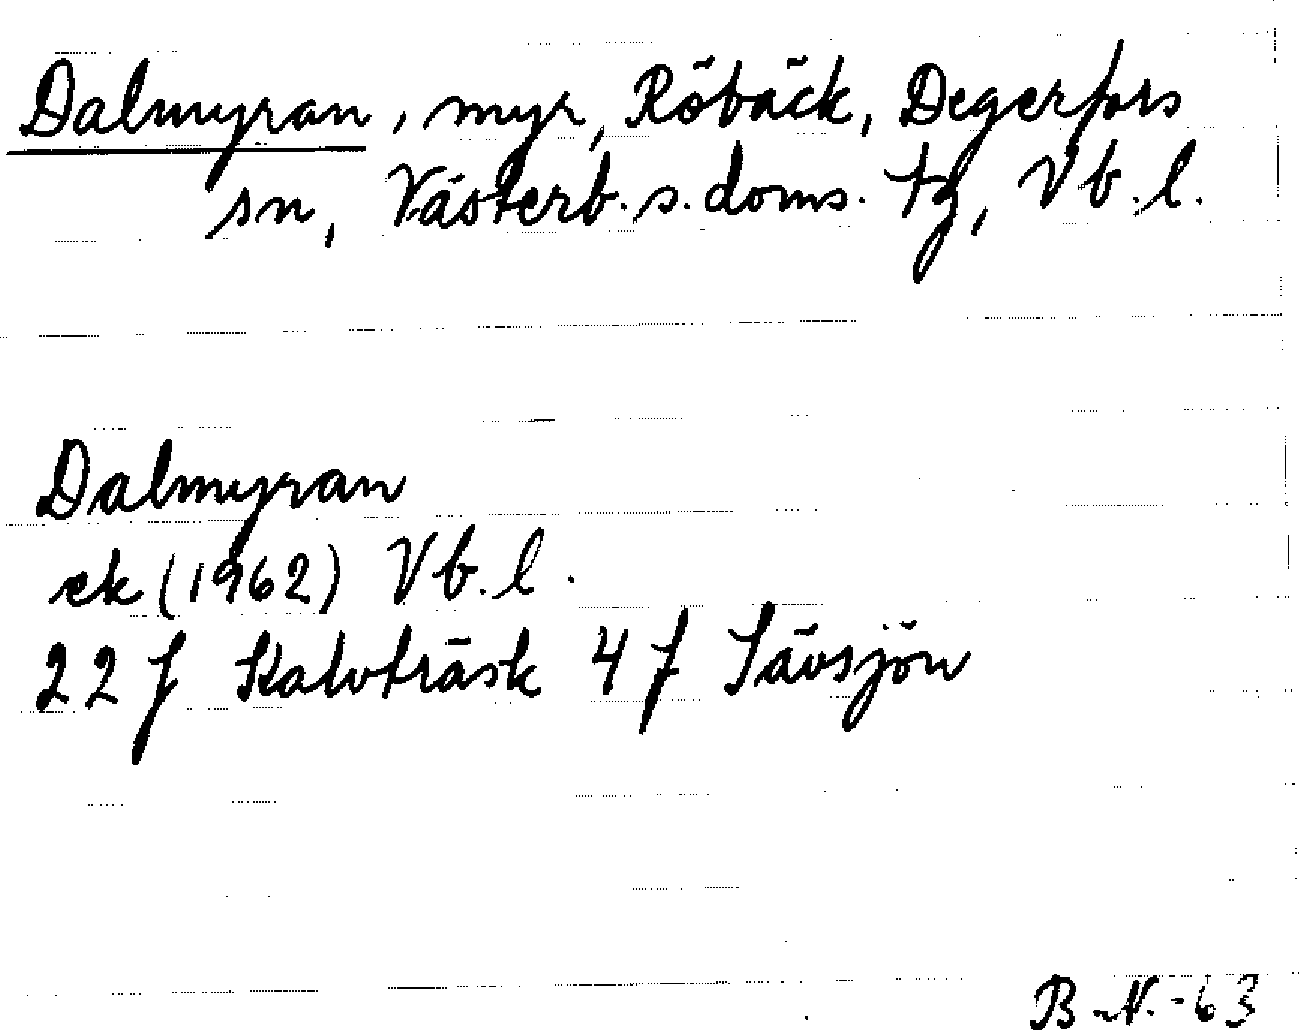 Dalmyran, myr, Röbäck, Degerfors
sn, Västerb. s. doms. tg, Vb. l.
Dalmyran
ek (1962) Vb. l.
22 J Kalvträsk 4 f Sävsjön
B-N.-63